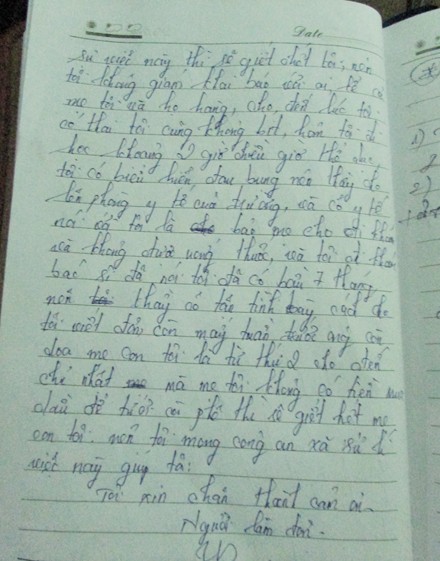 Date
sự việc này thì sẽ giết chết tôi, nên
tôi không giám khai báo với ai, kể cả
mẹ tôi và họ hàng, cho đến lúc tôi
có thai tôi cũng không biết, hôm tôi đi
học khoảng 2 giờ chiều giờ thể dục
tôi có biểu hiện, đau bụng nên thầy cho
lên phòng y tế của trường, và cô y tế
nói với tôi là bảo mẹ cho đi khám
và không được uống thuốc, và tôi đi khám
bác sĩ đã nói tôi đã có bầu 7 tháng
nên thầy cô tận tình bày cách cho
tôi viết đơn còn mấy tuần trước ông còn
dọa mẹ con tôi là từ thứ 2 cho đến
chủ nhật mà mẹ tôi không có tiền mua
dầu để tưới cà phê thì sẽ giết hết mẹ
con tôi. nên tôi mong công an xã xử lí
việc này giúp tôi:
Tôi xin chân thành cảm ơn.
Người làm đơn.
1)
2)